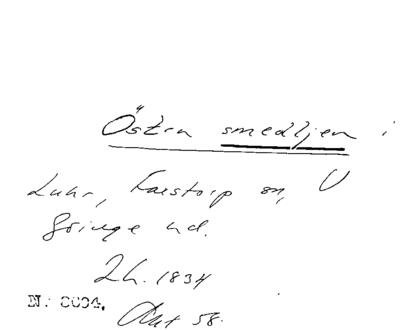 Östra smedljen i
Luhr, Farstorp sn, V
Göinge hd.
2h. 1834
N: 0004.
Akt 58.